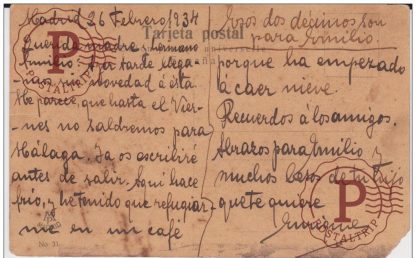 Madrid 26 Febrero 1934
Tarjeta postal
Querida madre y hermano
Emilio: Ayer tarde llega-
mos sin novedad á ésta.
Me parece que hasta el Vier-
nes no saldremos para
Málaga. Ya os escribiré
antes de salir. Aquí hace
frío, y he tenido que refugiar-
me en un café
No 31
Esos dos décimos son
para Emilio.
porque ha empezado
á caer nieve.
Recuerdos á los amigos.
Abrazos para Emilio y
muchos besos de tu hijo
que te quiere
Enrique
P
POSTALTRIP
P
POSTALTRIP